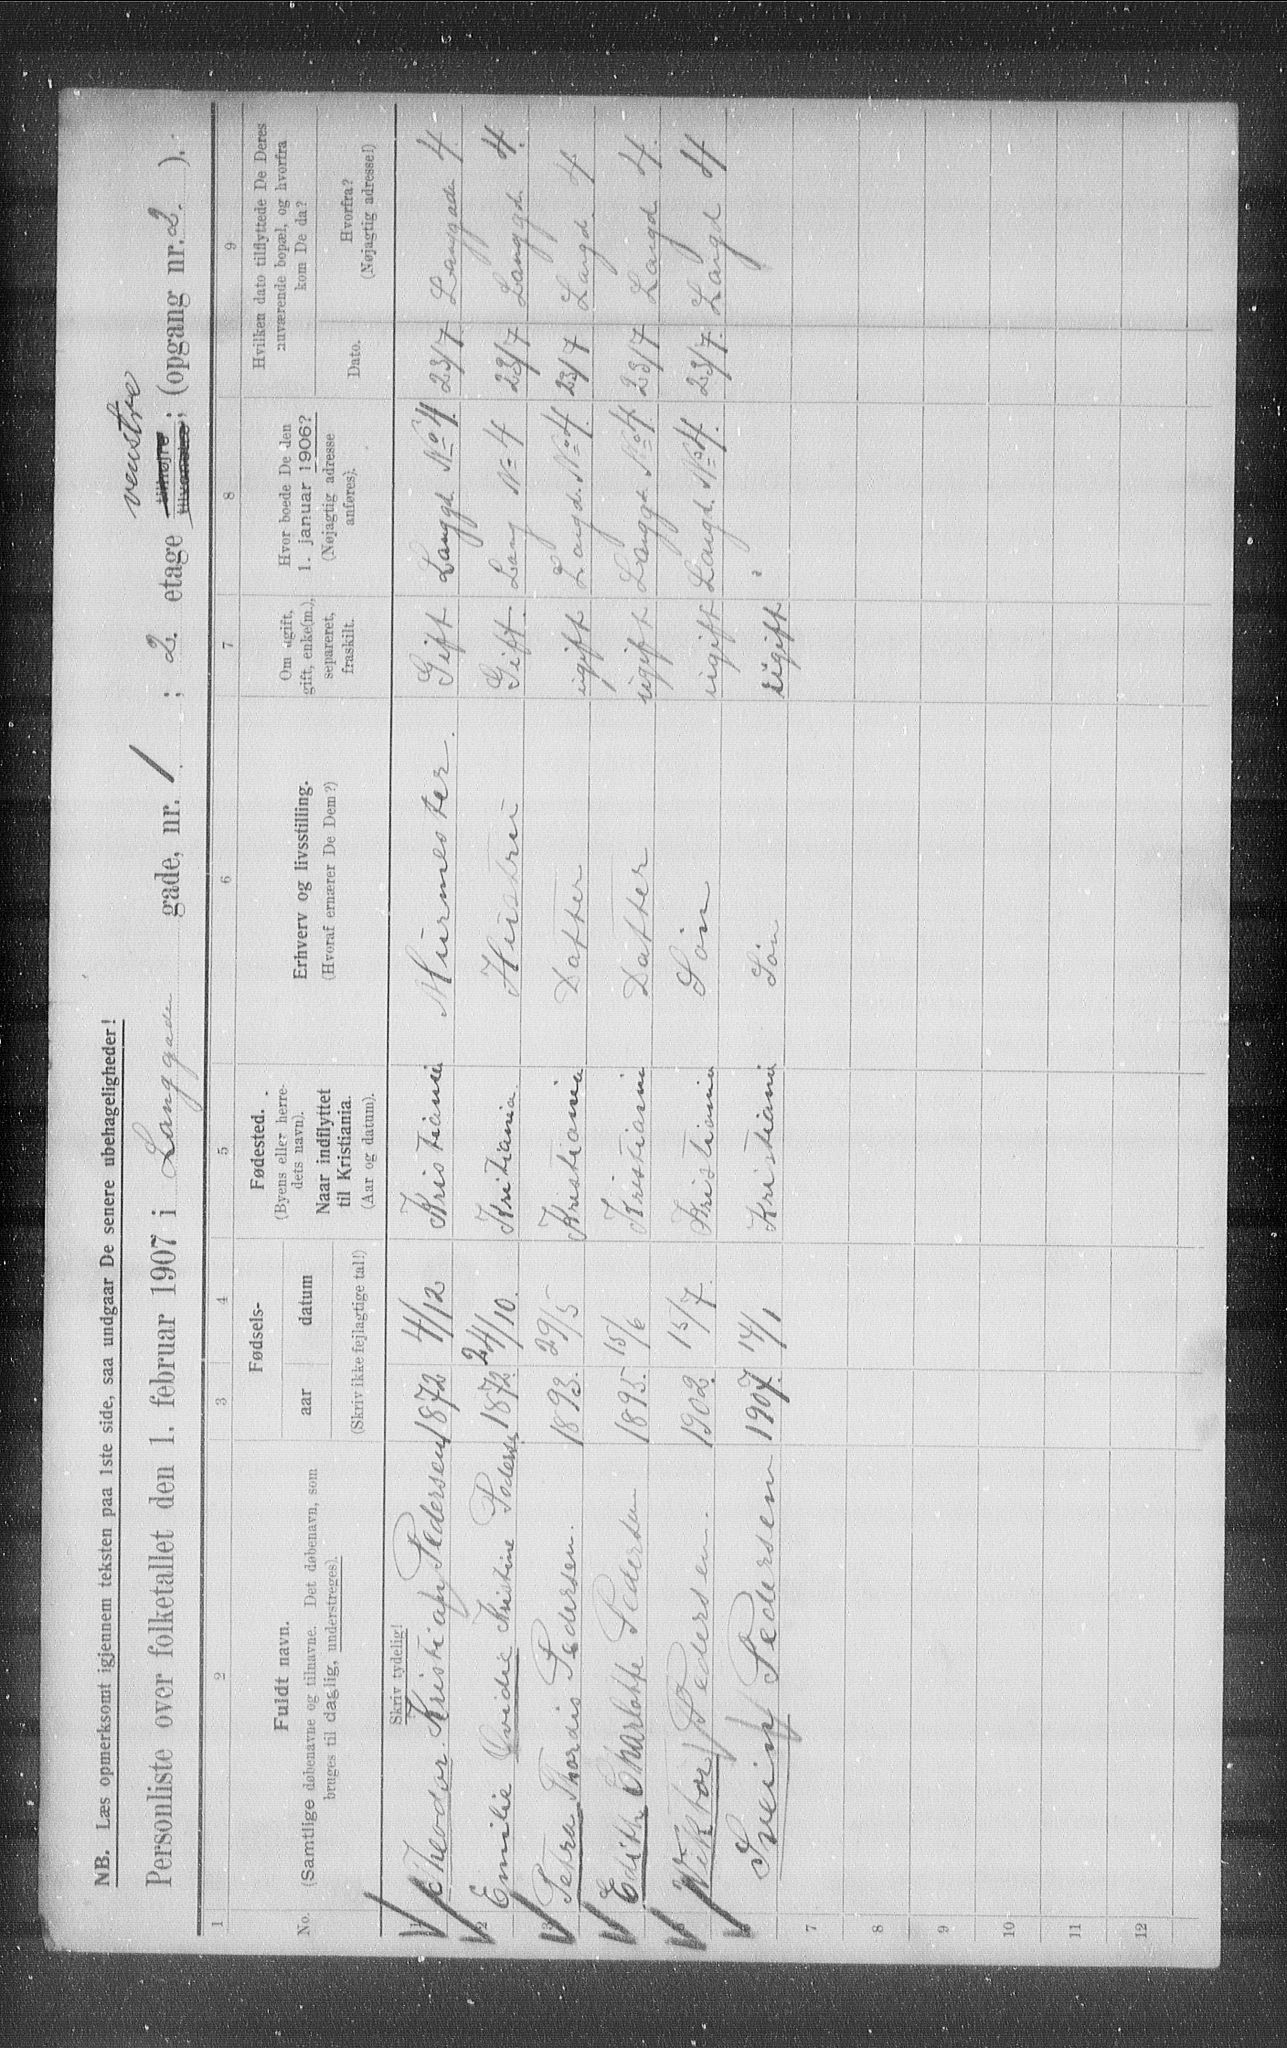 NB. Læs opmerksomt igjennem teksten paa 1ste side, saa undgaar De senere ubehageligheder!
Personliste over folketallet den 1. februar 1907 i Langgade gade, nr. 1 ; 2. etage tilhøjre tilvenstre venstre ; (opgang nr. 2. ).
1 2 3 4 5 6 7 8 9
No. Fuldt navn. (Samtlige døbenavne og tilnavne. Det døbenavn, som bruges til daglig, understreges).
Fødsels- aar datum (Skriv ikke fejlagtige tal!)
Fødested. (Byens eller herredets navn). Naar indflyttet til Kristiania. (Aar og datum).
Erhverv og livsstilling. (Hvoraf ernærer De Dem?)
Om ugift, gift, enke(m.), separeret, fraskilt.
Hvor boede De den 1. januar 1906? (Nøjagtig adresse anføres).
Hvilken dato tilflyttede De Deres nuværende bopæl, og hvorfra kom De da?
Dato. Hvorfra? (Nøjagtig adresse!)
Skriv tydelig!
1 Theodor Kristian Pedersen 1872 4/12 Kristiania Murmester. Gift Langgd. No 4. 23/7 Langgade 4.
2 Emilie Ovidie Kristine Pedersen 1872 24/10. Kritiania. Hustru Gift. Lang No 4 23/7 Langgd. 4.
3 Petra Thordis Pedersen. 1893. 29/5 Kristiania Datter ugift Langd. No 4. 23/7 Langd. 4
4 Edith Charlotte Pedersen 1895. 15/6 Kristiania Datter ugift Langgd. No 4. 23/7 Langd 4.
5 Viktor Pedersen. 1902. 15/7. Kristiania Søn ugift Langd. No 4. 23/7. Langd 4
6 Svein Pedersen 1907. 14/1 Kristiania Søn ugift "
7
8
9
10
11
12